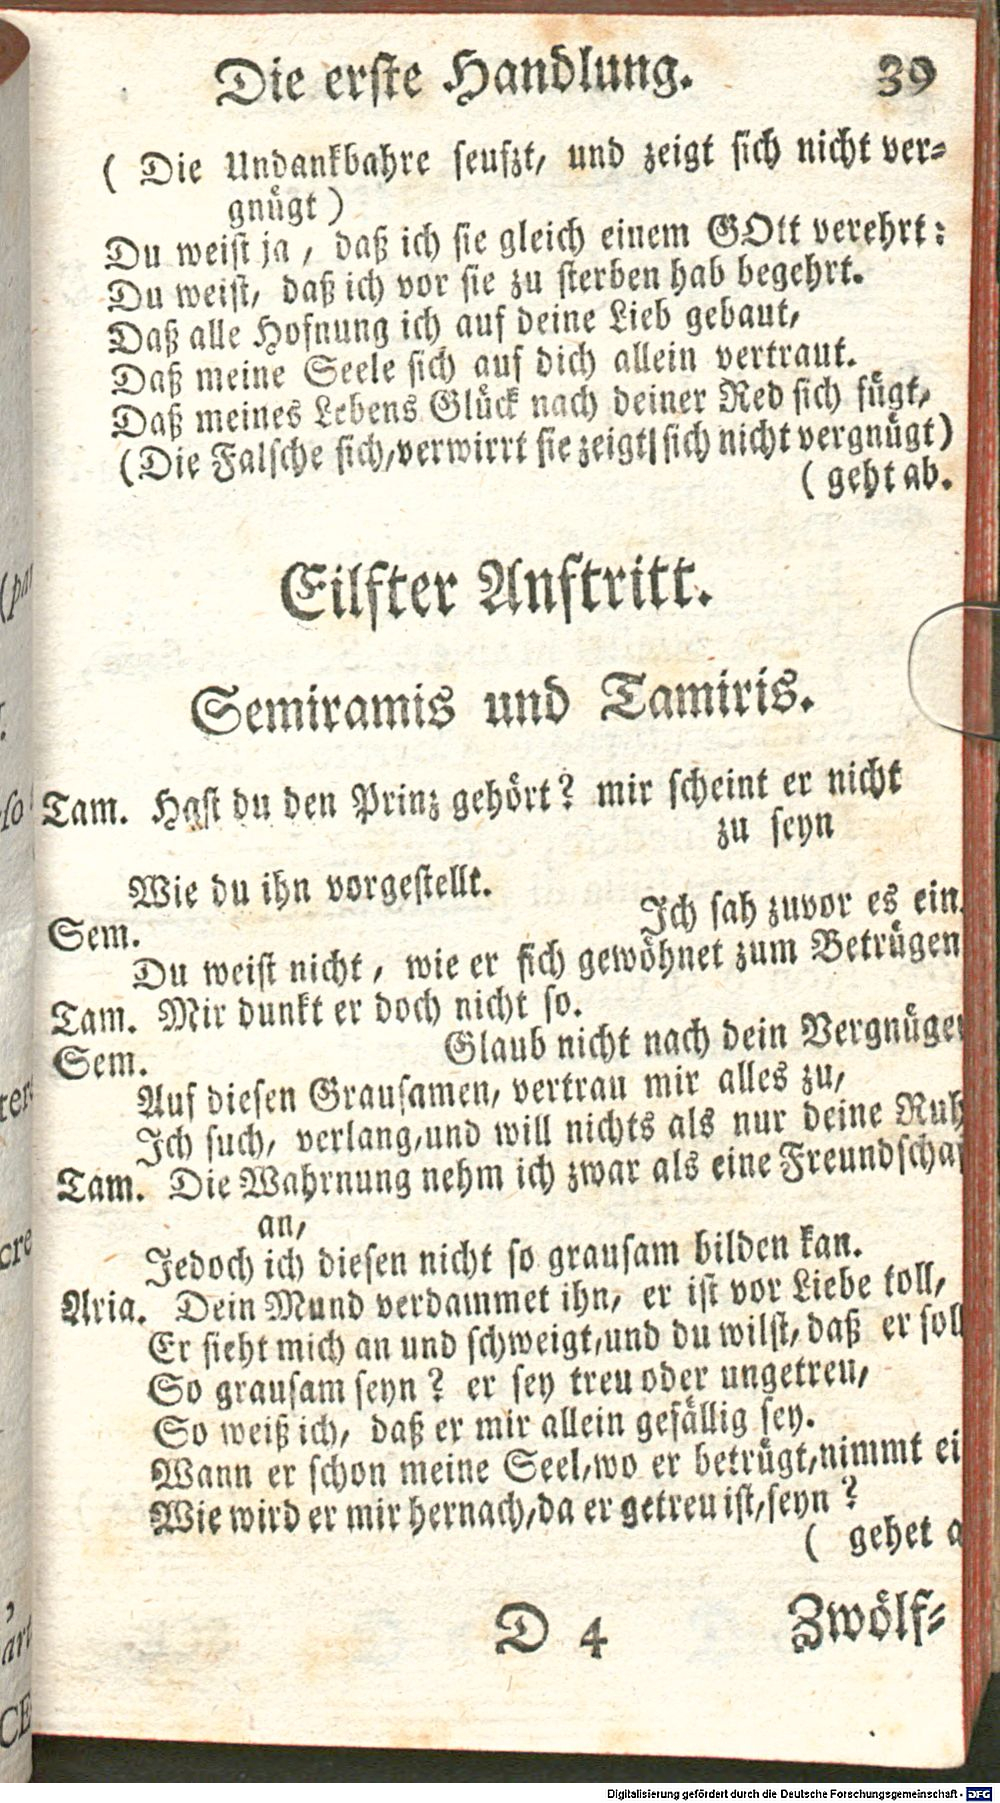 Die erste Handlung. 39
( Die Undankbahre seufzt, und zeigt sich nicht ver-
gnügt )
Du weist ja, daß ich sie gleich einem GOtt verehrt:
Du weist, daß ich vor sie zu sterben hab begehrt.
Daß alle Hofnung ich auf deine Lieb gebaut,
Daß meine Seele sich auf dich allein vertraut.
Daß meines Lebens Glück nach deiner Red sich fügt,
(Die Falsche sich, verwirrt sie zeigt sich nicht vergnügt)
( geht ab.
Eilfter Anftritt.
Semiramis und Tamiris.
Tam. Hast du den Prinz gehört? mir scheint er nicht
zu seyn
Wie du ihn vorgestellt.
Sem. Ich sah zuvor es ein.
Du weist nicht, wie er sich gewöhnet zum Betrügen
Tam. Mir dunkt er doch nicht so.
Sem. Glaub nicht nach dein Vergnügen
Auf diesen Grausamen, vertrau mir alles zu,
Ich such, verlang, und will nichts als nur deine Ruh
Tam. Die Wahrnung nehm ich zwar als eine Freundschaf
an,
Jedoch ich diesen nicht so grausam bilden kan.
Aria. Dein Mund verdammet ihn, er ist vor Liebe toll,
Er sieht mich an und schweigt, und du wilst, daß er soll
So grausam seyn? er sey treu oder ungetreu,
So weiß ich, daß er mir allein gefällig sey.
Wann er schon meine Seel, wo er betrügt, nimmt ei
Wie wird er mir hernach, da er getreu ist, seyn?
( gehet a
D 4 Zwölf-
Digitalisierung gefördert durch die Deutsche Forschungsgemeinschaft - DFG